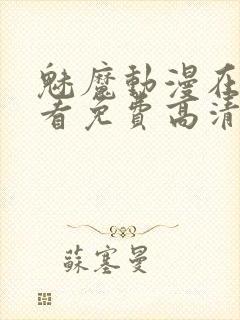 魅魔動漫在
看免費高清
蘇塞曼